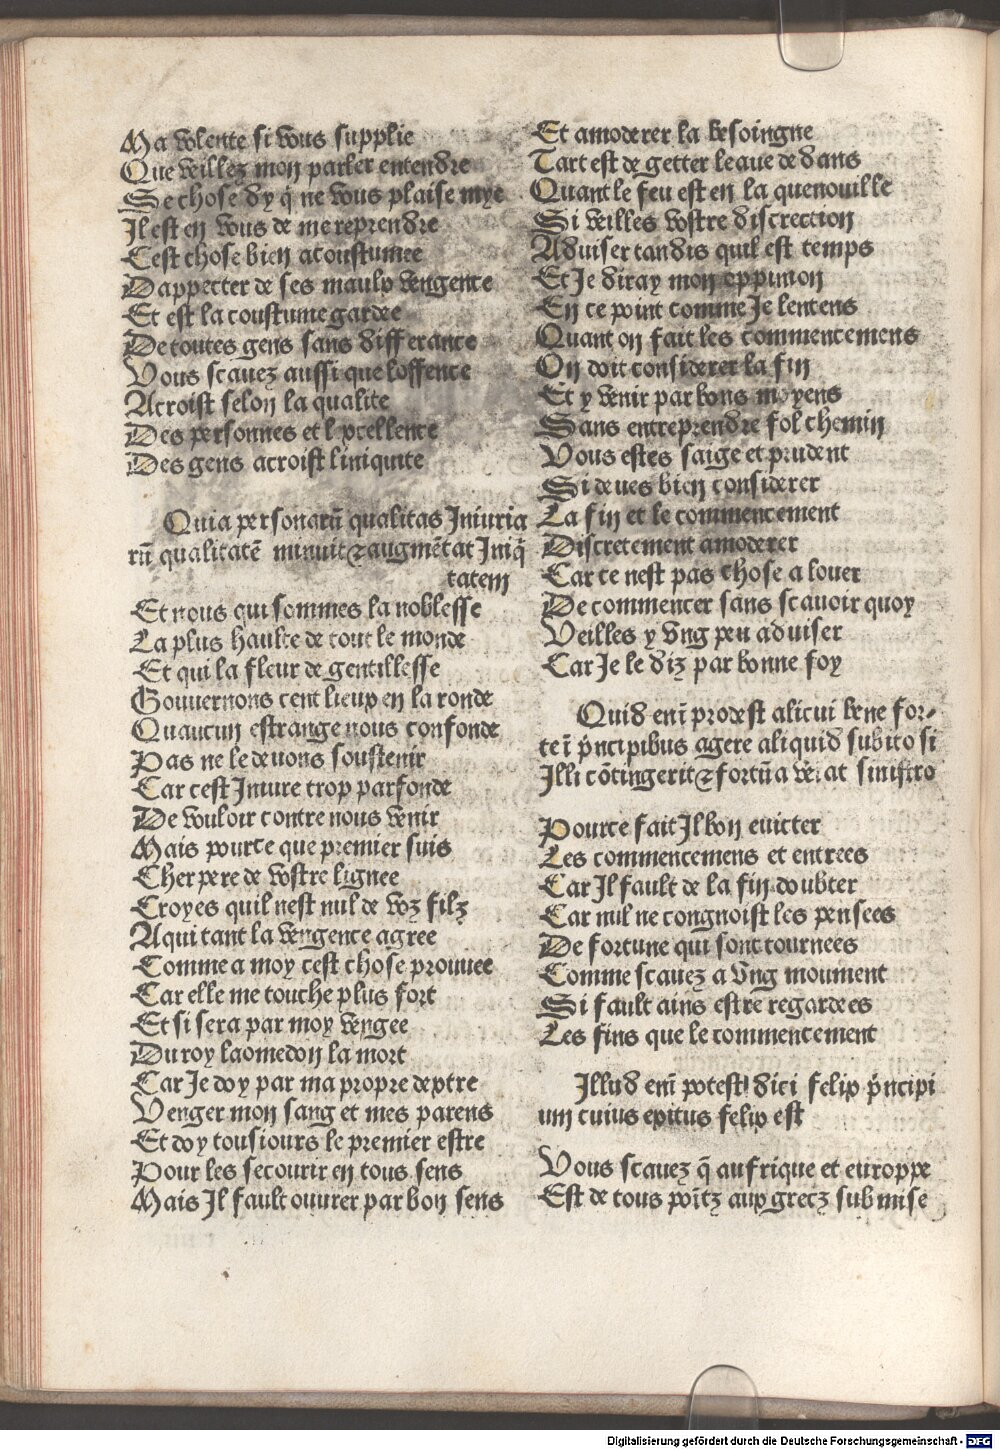 Ma volente si vous supplie
Que veillez mon parler entendre
Se chose dy q̃ ne vous plaise mye
Il est en vous de me reprendre
Cest chose bien acoustumee
Dappecter de ses maulx vengence
Et est la coustume gardee
De toutes gens sans differance
Vous scauez aussi que loffence
Acroist selon la qualite
Des personnes et lexcellence
Des gens acroist liniquite
Quia personarũ qualitas Iniuria
rũ qualitatẽ minuit ⁊ augmẽtat Iniq̃
tatem
Et nous qui sommes la noblesse
La plus haulte de tout le monde
Et qui la fleur de gentillesse
Gouuernons cent lieux en la ronde
Quaucun estrange nous confonde
Pas ne le deuons soustenir
Car cest Iniure trop parfonde
De vouloir contre nous venir
Mais pource que premier suis
Cher pere de vostre lignee
Croyes quil nest nul de voz filz
A qui tant la vengence agree
Comme a moy cest chose prouuee
Car elle me touche plus fort
Et si sera par moy vengee
Du roy laomedon la mort
Car Je doy par ma propre dextre
Venger mon sang et mes parens
Et doy tousiours le premier estre
Pour les secourir en tous sens
Mais Il fault ouurer par bon sens
Et amoderer la besoingne
Tart est de getter leaue dedans
Quant le feu est en la quenouille
Si veilles vostre discrection
Aduiser tandis quil est temps
Et Je diray mon oppinion
En ce point comme Je lentens
Quant on fait les commencemens
On doit considerer la fin
Et y venir par bons moyens
Sans entreprendre fol chemin
Vous estes saige et prudent
Si deues bien considerer
La fin et le commencement
Discretement amoderer
Car ce nest pas chose a louer
De commencer sans scauoir quoy
Veilles y vng peu aduiser
Car Je le diz par bonne foy
Quid enĩ prodest alicui bene for-
te ĩ p̃ncipibus agere aliquid subito si
Illi cõtingerit ⁊ fortũa vẽiat sinistro
Pource fait Il bon euicter
Les commencemens et entrees
Car Il fault de la fin doubter
Car nul ne congnoist les pensees
De fortune qui sont tournees
Comme scauez a vng moument
Si fault ains estre regardees
Les fins que le commencement
Illud enĩ potest dici felix p̃ncipi
um cuius exitus felix est
Vous scauez q̃ aufrique et europpe
Est de tous poĩtz aux grecz submise
Digitalisierung gefördert durch die Deutsche Forschungsgemeinschaft - DFG